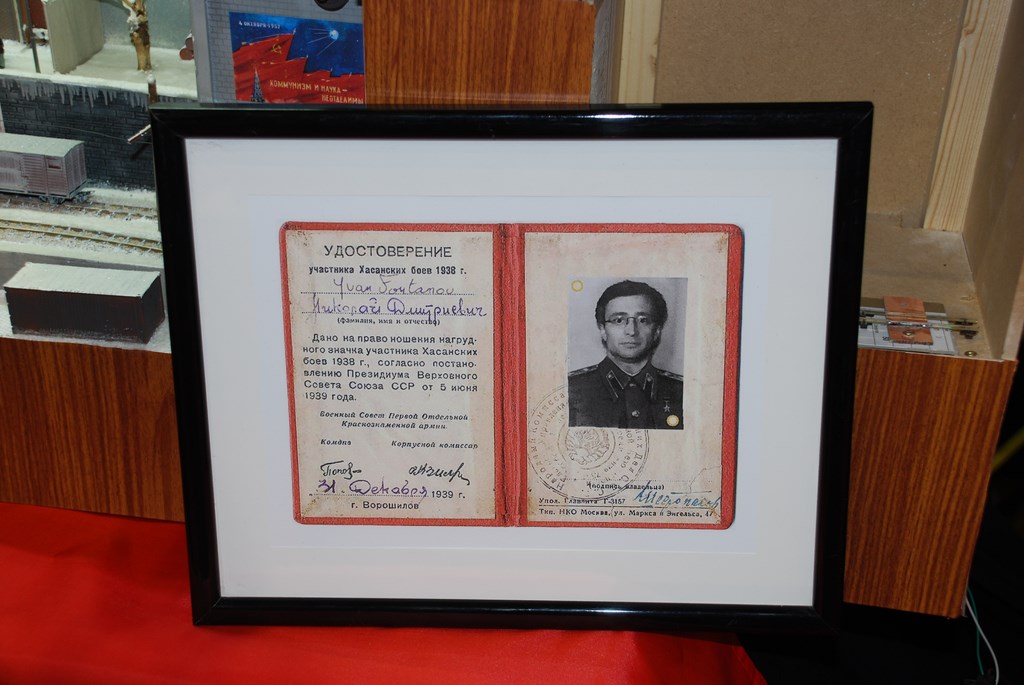 4 ОКТЯБРЯ 1957
КОММУНИЗМ И НАУКА—
НЕОТДЕЛИМЫ
УДОСТОВЕРЕНИЕ
участника Хасанских боев 1938 г.
Yvan
Николай Дмитриевич
(фамилия, имя и отчество)
Дано на право ношения нагруд-
ного значка участника Хасанских
боев 1938 г., согласно постано-
влению Президиума Верховного
Совета Союза ССР от 5 июня
1939 года.
Военный Совет Первой Отдельной
Краснознаменной армии.
Комдив Корпусной комиссар
31 Декабря 1939 г.
г. Ворошилов
(подпись владельца)
Упол. Главлита Г-3157
Тип. НКО Москва, ул. Маркса и Энгельса, 17